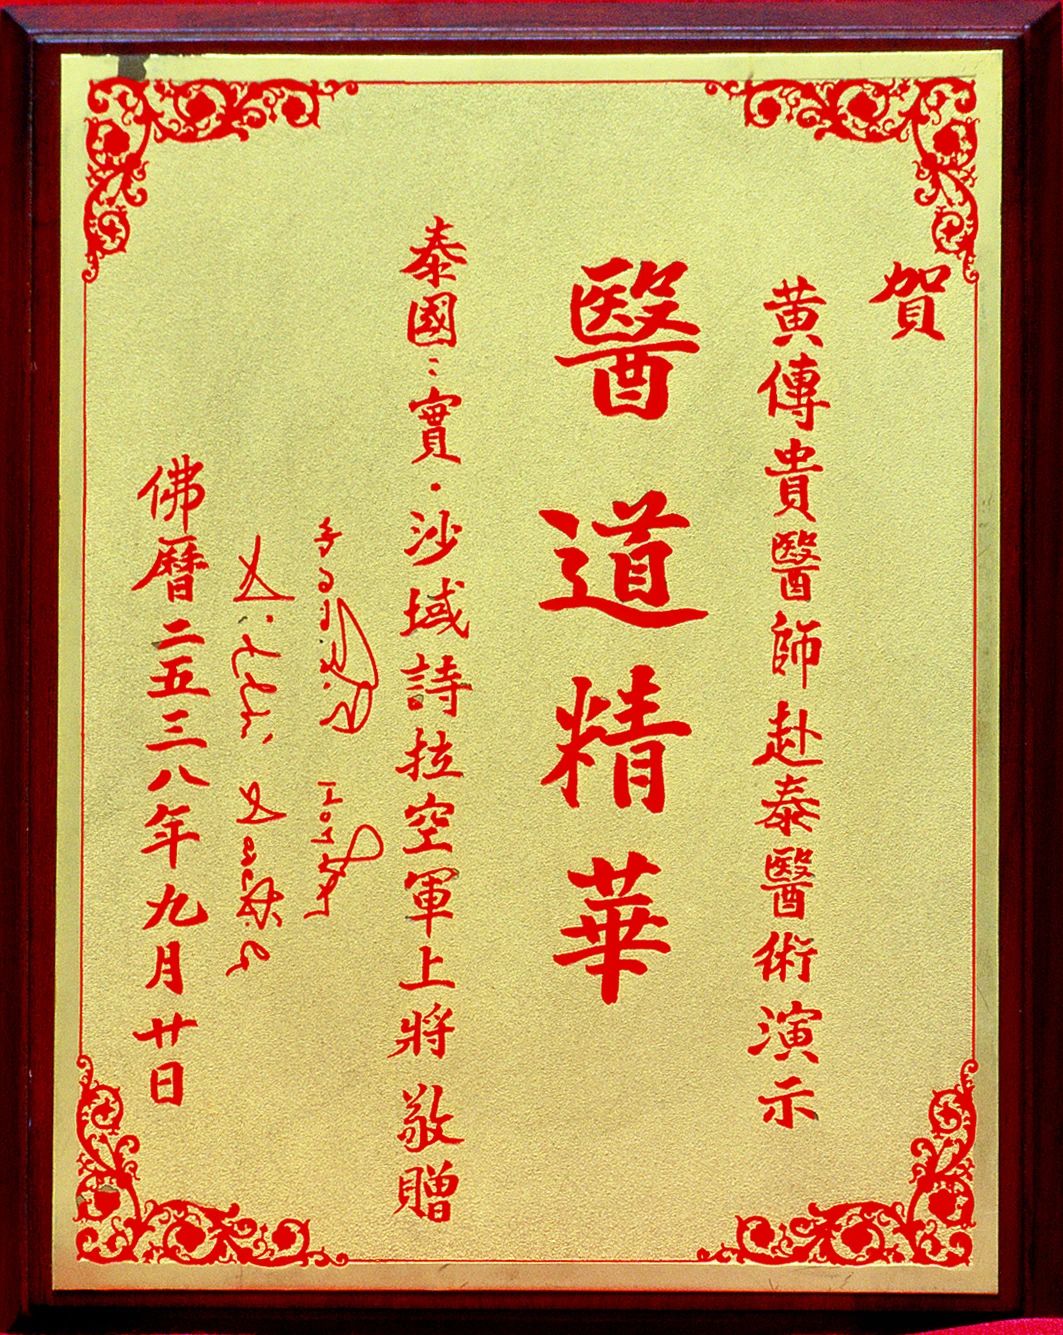 賀
黄傳貴醫師赴泰醫術演示
醫道精華
泰國：實·沙域詩拉空軍上將 敬贈
佛曆二五三八年九月廿日